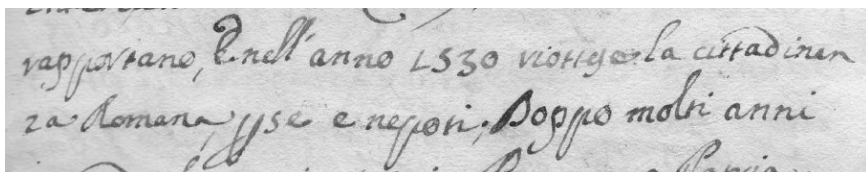 rapportano, E nell' anno 1530 viottge la cittadinan
za Romana, p se e nepoti, Doppo molti anni